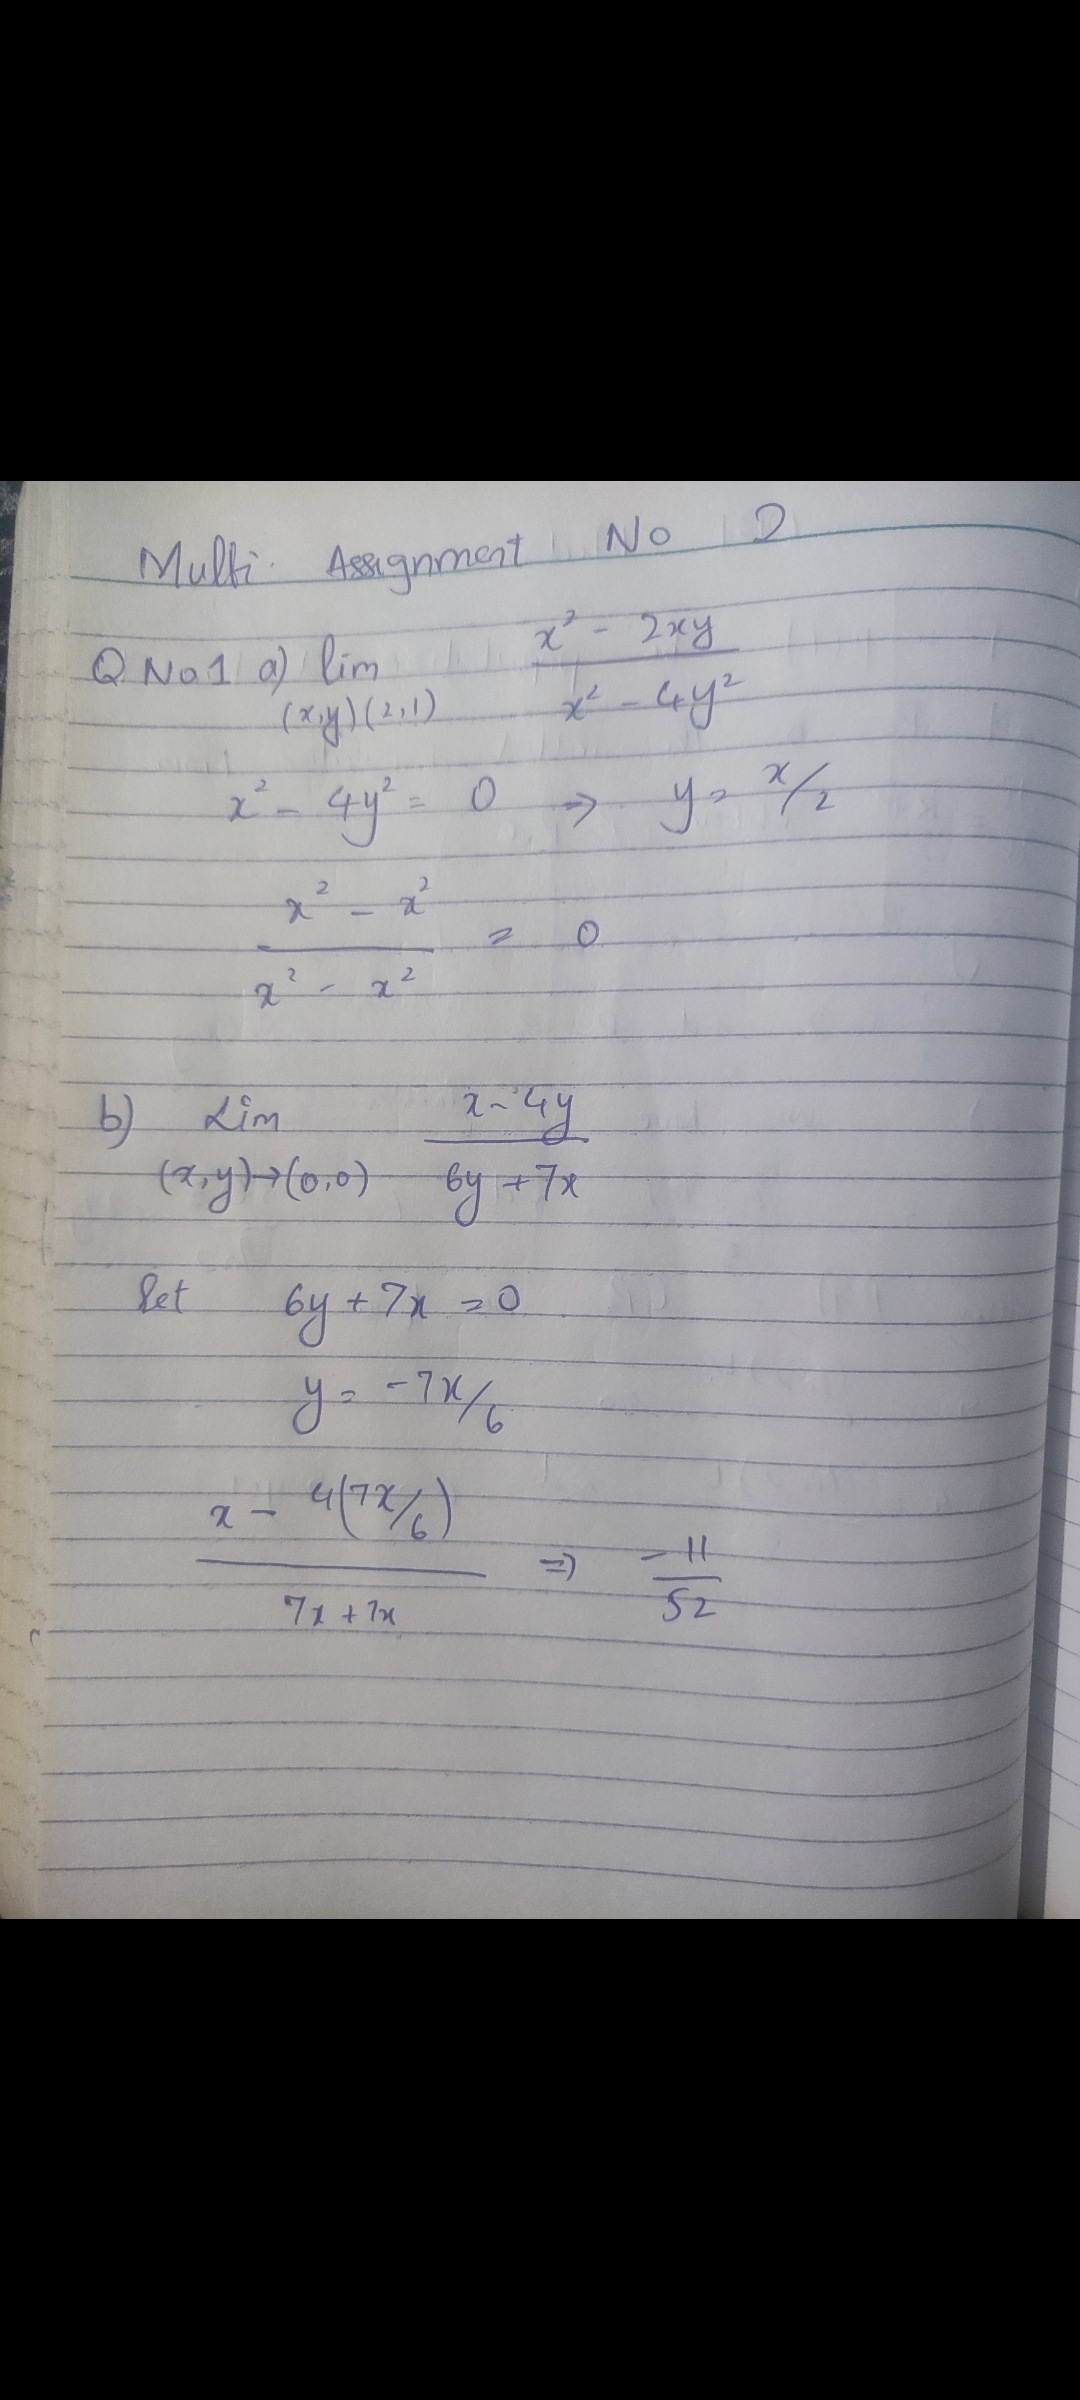 Multi. Assignment No 2
Q No1 a) lim x² - 2xy / x² - 4y²
(x,y)(2,1)
x² - 4y² = 0 => y = x/2
x² - x² / x² - x² = 0
b) Lim x - 4y / 6y + 7x
(x,y)→(0,0)
Set 6y + 7x = 0
y = -7x/6
x - 4(7x/6) / 7x + 7x => -11/52